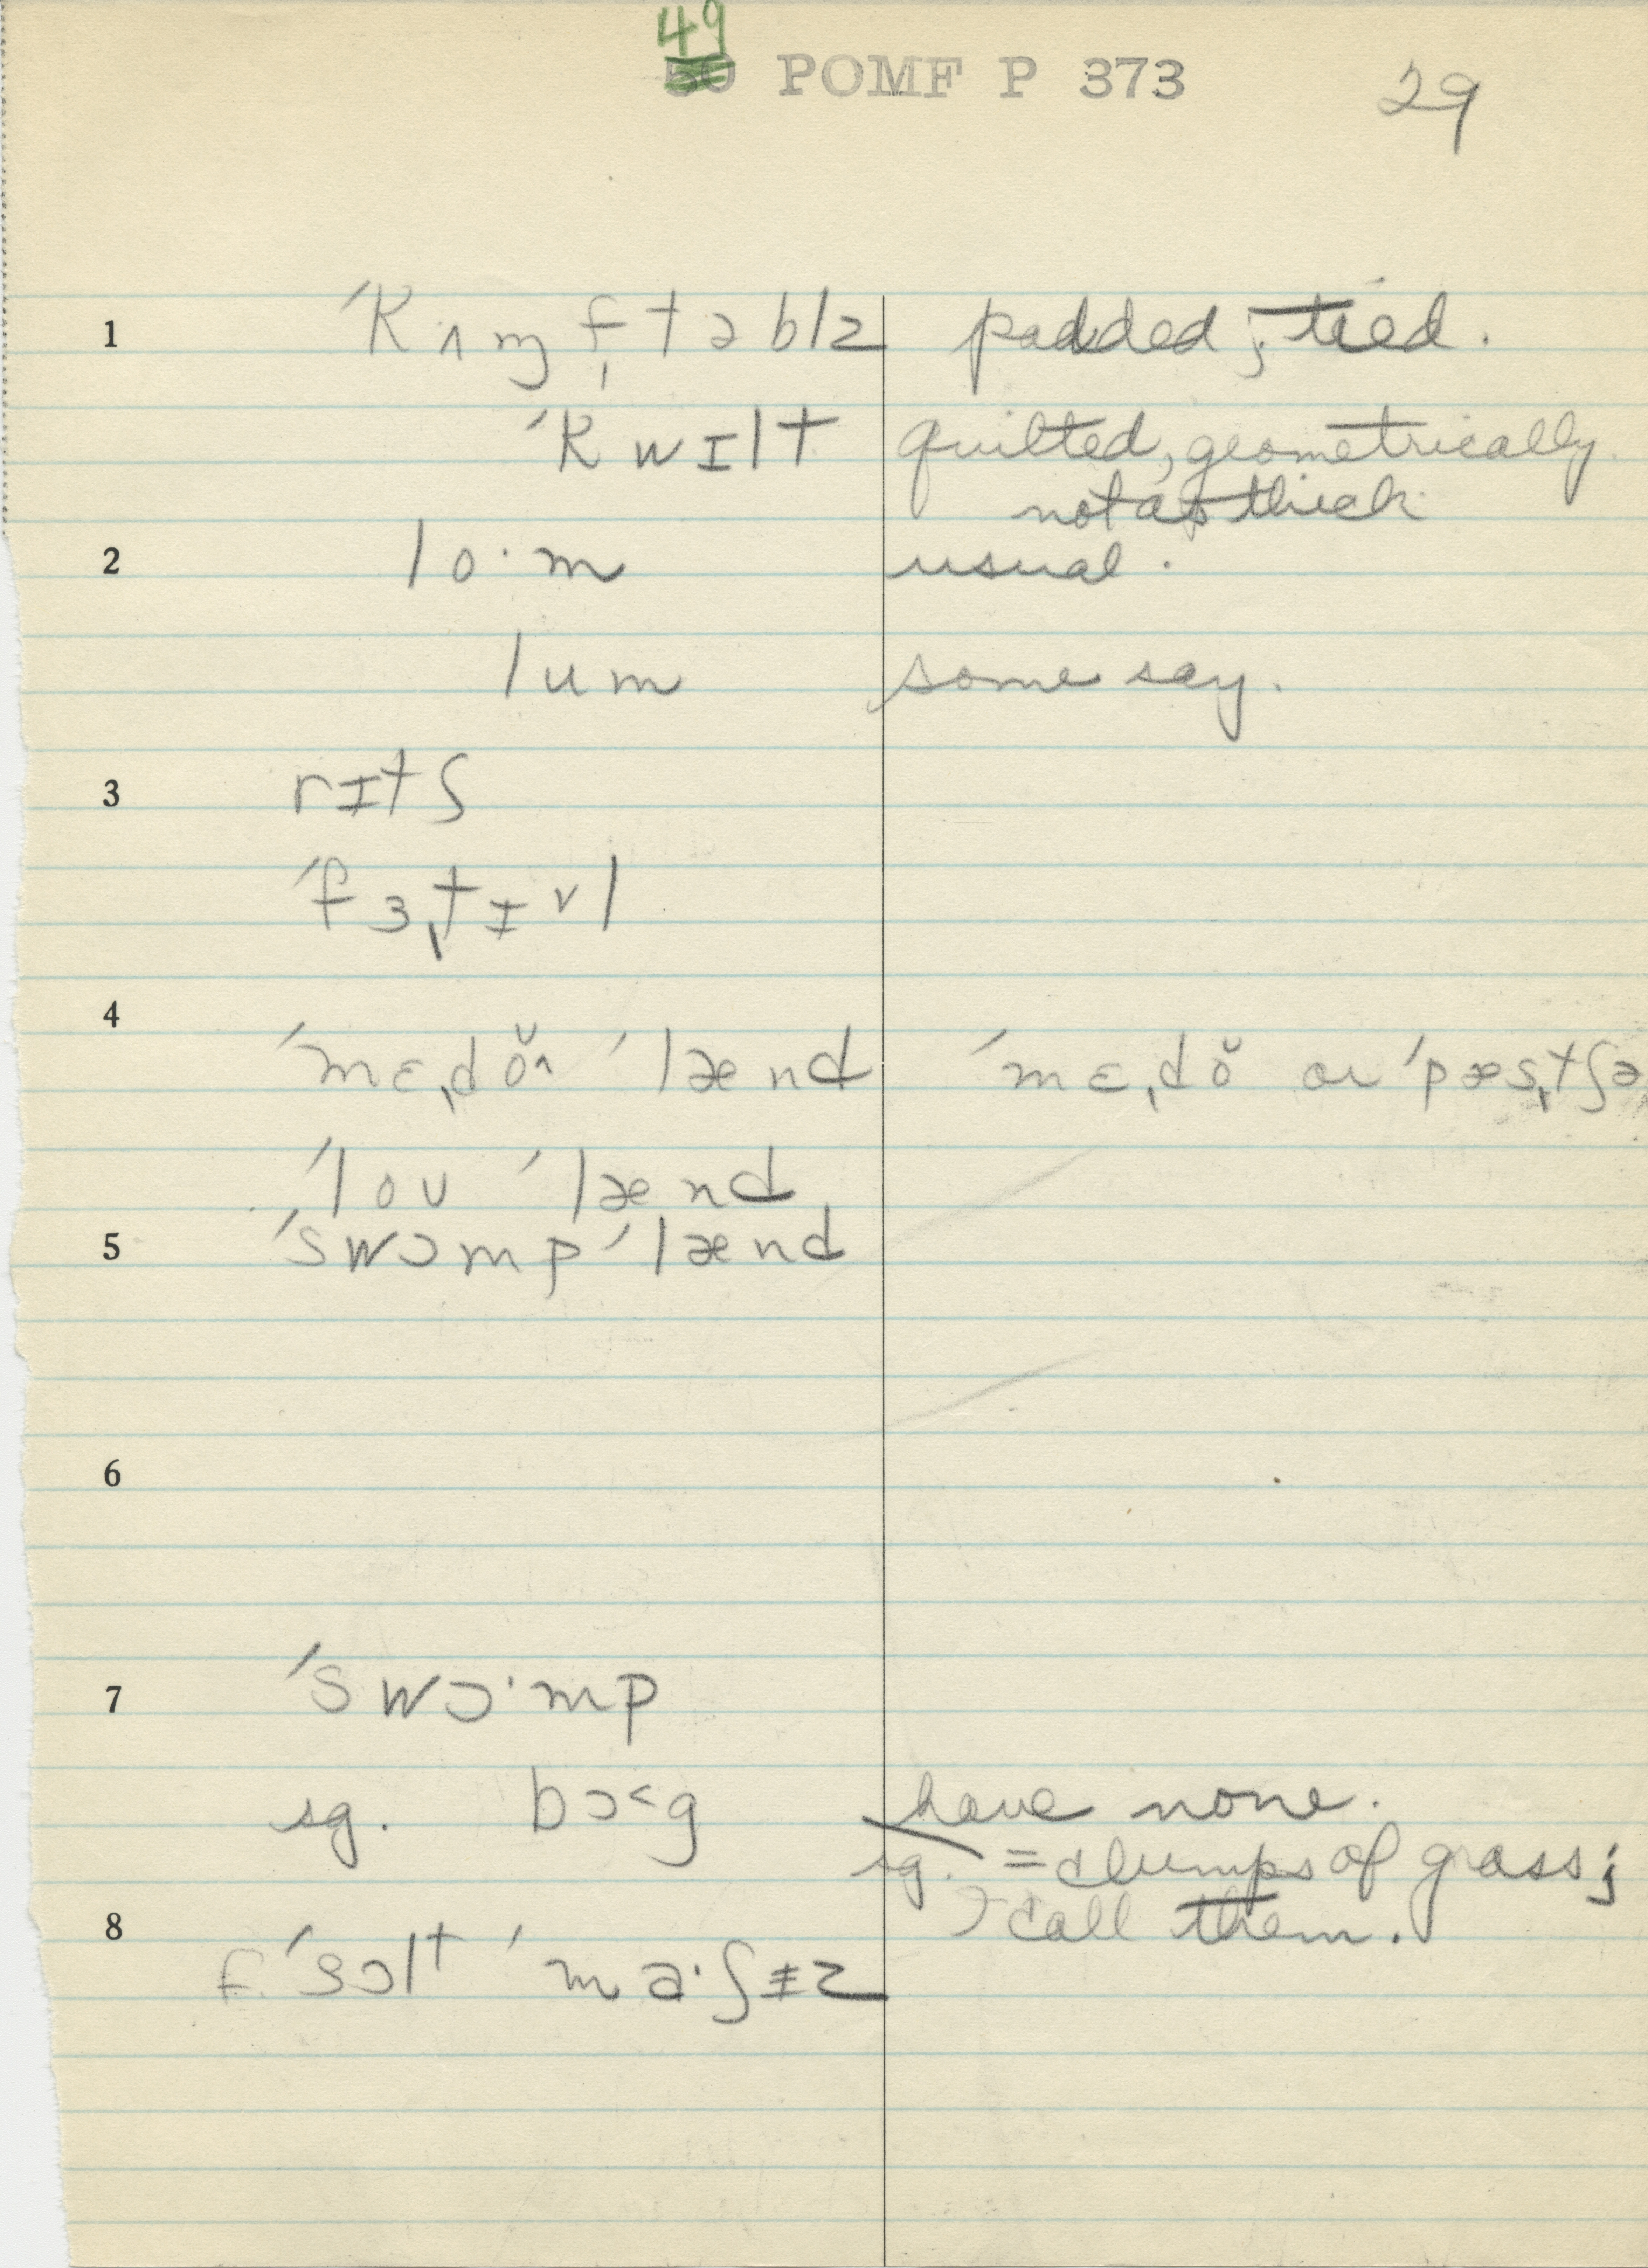 49
50 POMF P 373 29
1 ′kʌɱf̩təblz padded; tied.
′kwɪlt quilted, geometrically
not as thick
2 lo·m usual.
lum some say.
3 rɪtʃ
′fɜ,tɪvl
4 ′mɛ,dŏ^ ′lænd ′mɛ,dŏ or ′pæs,tʃə
′loʊ ′lænd
5 ′swɔmp ′lænd
6
7 ′swɔ·mp
sg. bɔ˂g have none.
sg. = clumps of grass;
call them.
8 f. ′sɔlt ′ma·ʃɪz